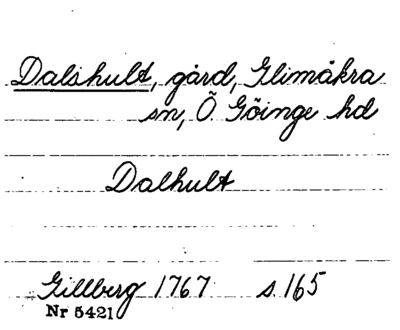 Dalshult, gård, Glimåkra
sn, Ö. Göinge hd
Dalhult
Gillberg 1767 s. 165
Nr 5421